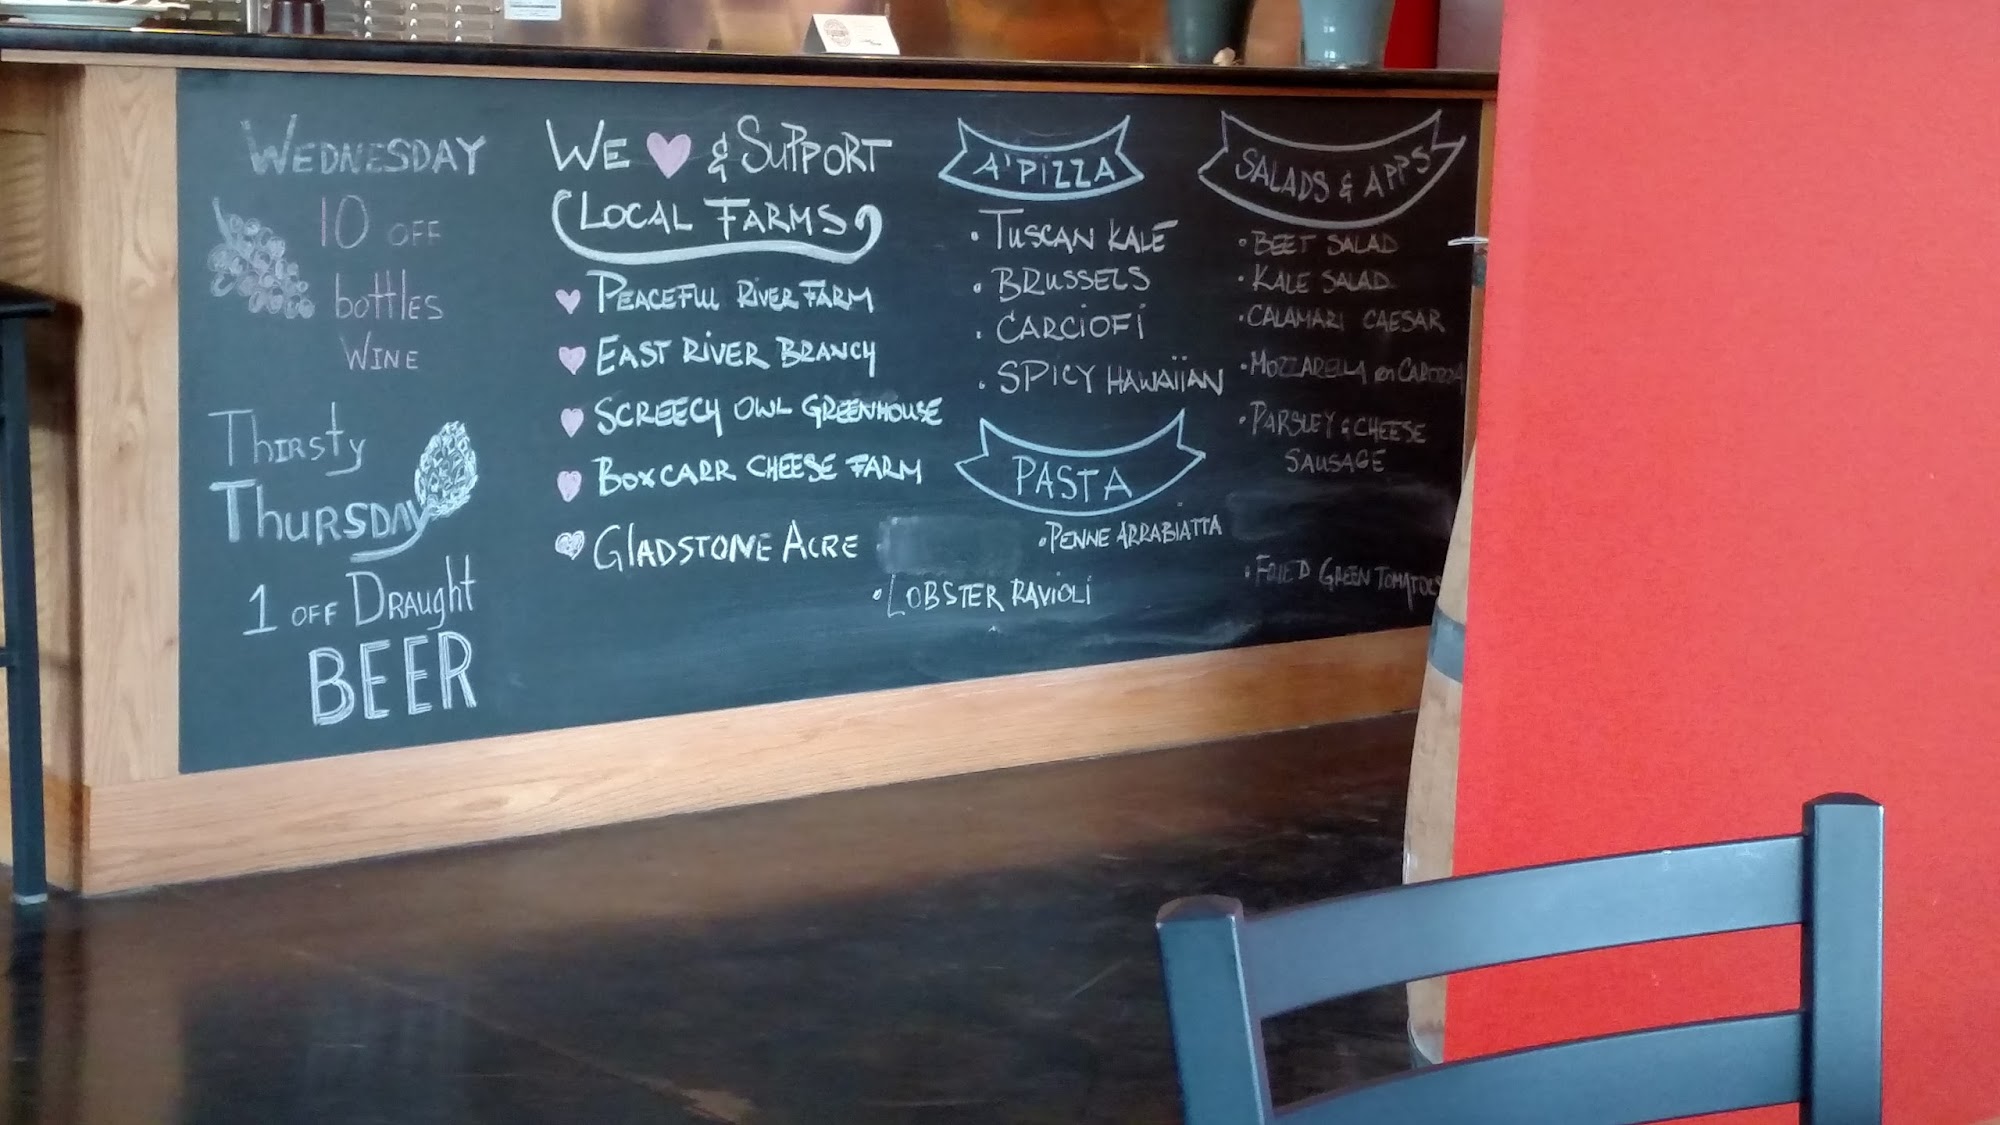 WEDNESDAY
10 OFF
bottles
WINE
Thirsty
THURSDAY
1 OFF DRAUGHT
BEER
WE & SUPPORT
LOCAL FARMS
PEACEFUL RIVER FARM
EAST RIVER BRANCH
SCREECH OWL GREENHOUSE
BOXCARR CHEESE FARM
GLADSTONE ACRE
A'PIZZA
• TUSCAN KALE
• BRUSSELS
• CARCIOFI
• SPICY HAWAIIAN
PASTA
• PENNE ARRABIATTA
• LOBSTER RAVIOLI
SALADS & APPS
• BEET SALAD
• KALE SALAD
• CALAMARI CAESAR
• MOZZARELLA en
• PARSLEY & CHEESE
SAUSAGE
• FRIED GREEN TOMATOES